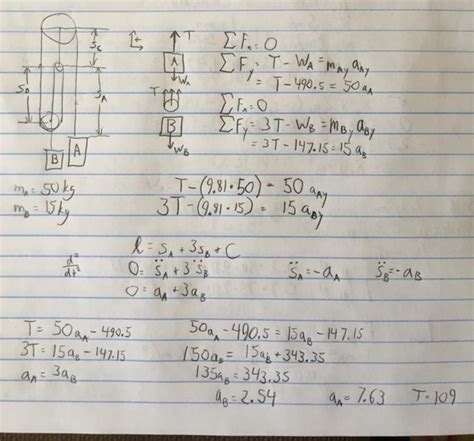 S_c
T
ΣF_x = 0
A
W_A
ΣF_y = T - W_A = m_Ay a_Ay
= T - 490.5 = 50a_A
S_B
S_A
T
ΣF_x = 0
B
W_B
ΣF_y = 3T - W_B = m_By a_By
= 3T - 147.15 = 15a_B
B A
m_A = 50 kg
m_B = 15 kg
T - (9.81·50) = 50 a_Ay
3T - (9.81·15) = 15 a_By
l = S_A + 3S_B + C
d²/dt²
0 = S̈_A + 3S̈_B
S̈_A = -a_A
S̈_B = -a_B
0 = a_A + 3a_B
T = 50a_A - 490.5
3T = 15a_B - 147.15
a_A = 3a_B
50a_A - 490.5 = 15a_B - 147.15
150a_B = 15a_B + 343.35
135a_B = 343.35
a_B = 2.54
a_A = 7.63
T = 109